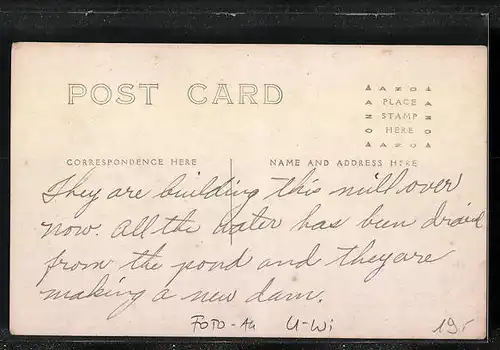 POST CARD
AZO
PLACE
STAMP
HERE
AZO
CORRESPONDENCE HERE
NAME AND ADDRESS HERE
They are building this mill over
now. All the water has been draied
from the pond and they are
making a new dam.
FOTO-AK U-Wi